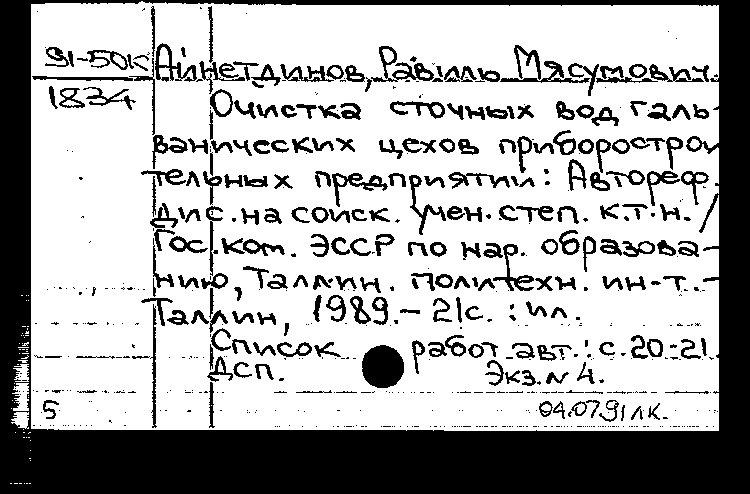 91-50К Айнетдинов, Равилль Мясумович.
1834 Очистка сточных вод галь-
ванических цехов приборострои
тельных предприятий: Автореф.
дис. на соиск. учен. степ. к.т.н. /
Гос. ком. ЭССР по нар. образова-
нию, Таллин. политехн. ин-т. -
Таллин, 1989. - 21с. : ил.
Список работ авт.: с. 20-21.
ДСП. Экз. N 4.
5 04.07.91 лк.